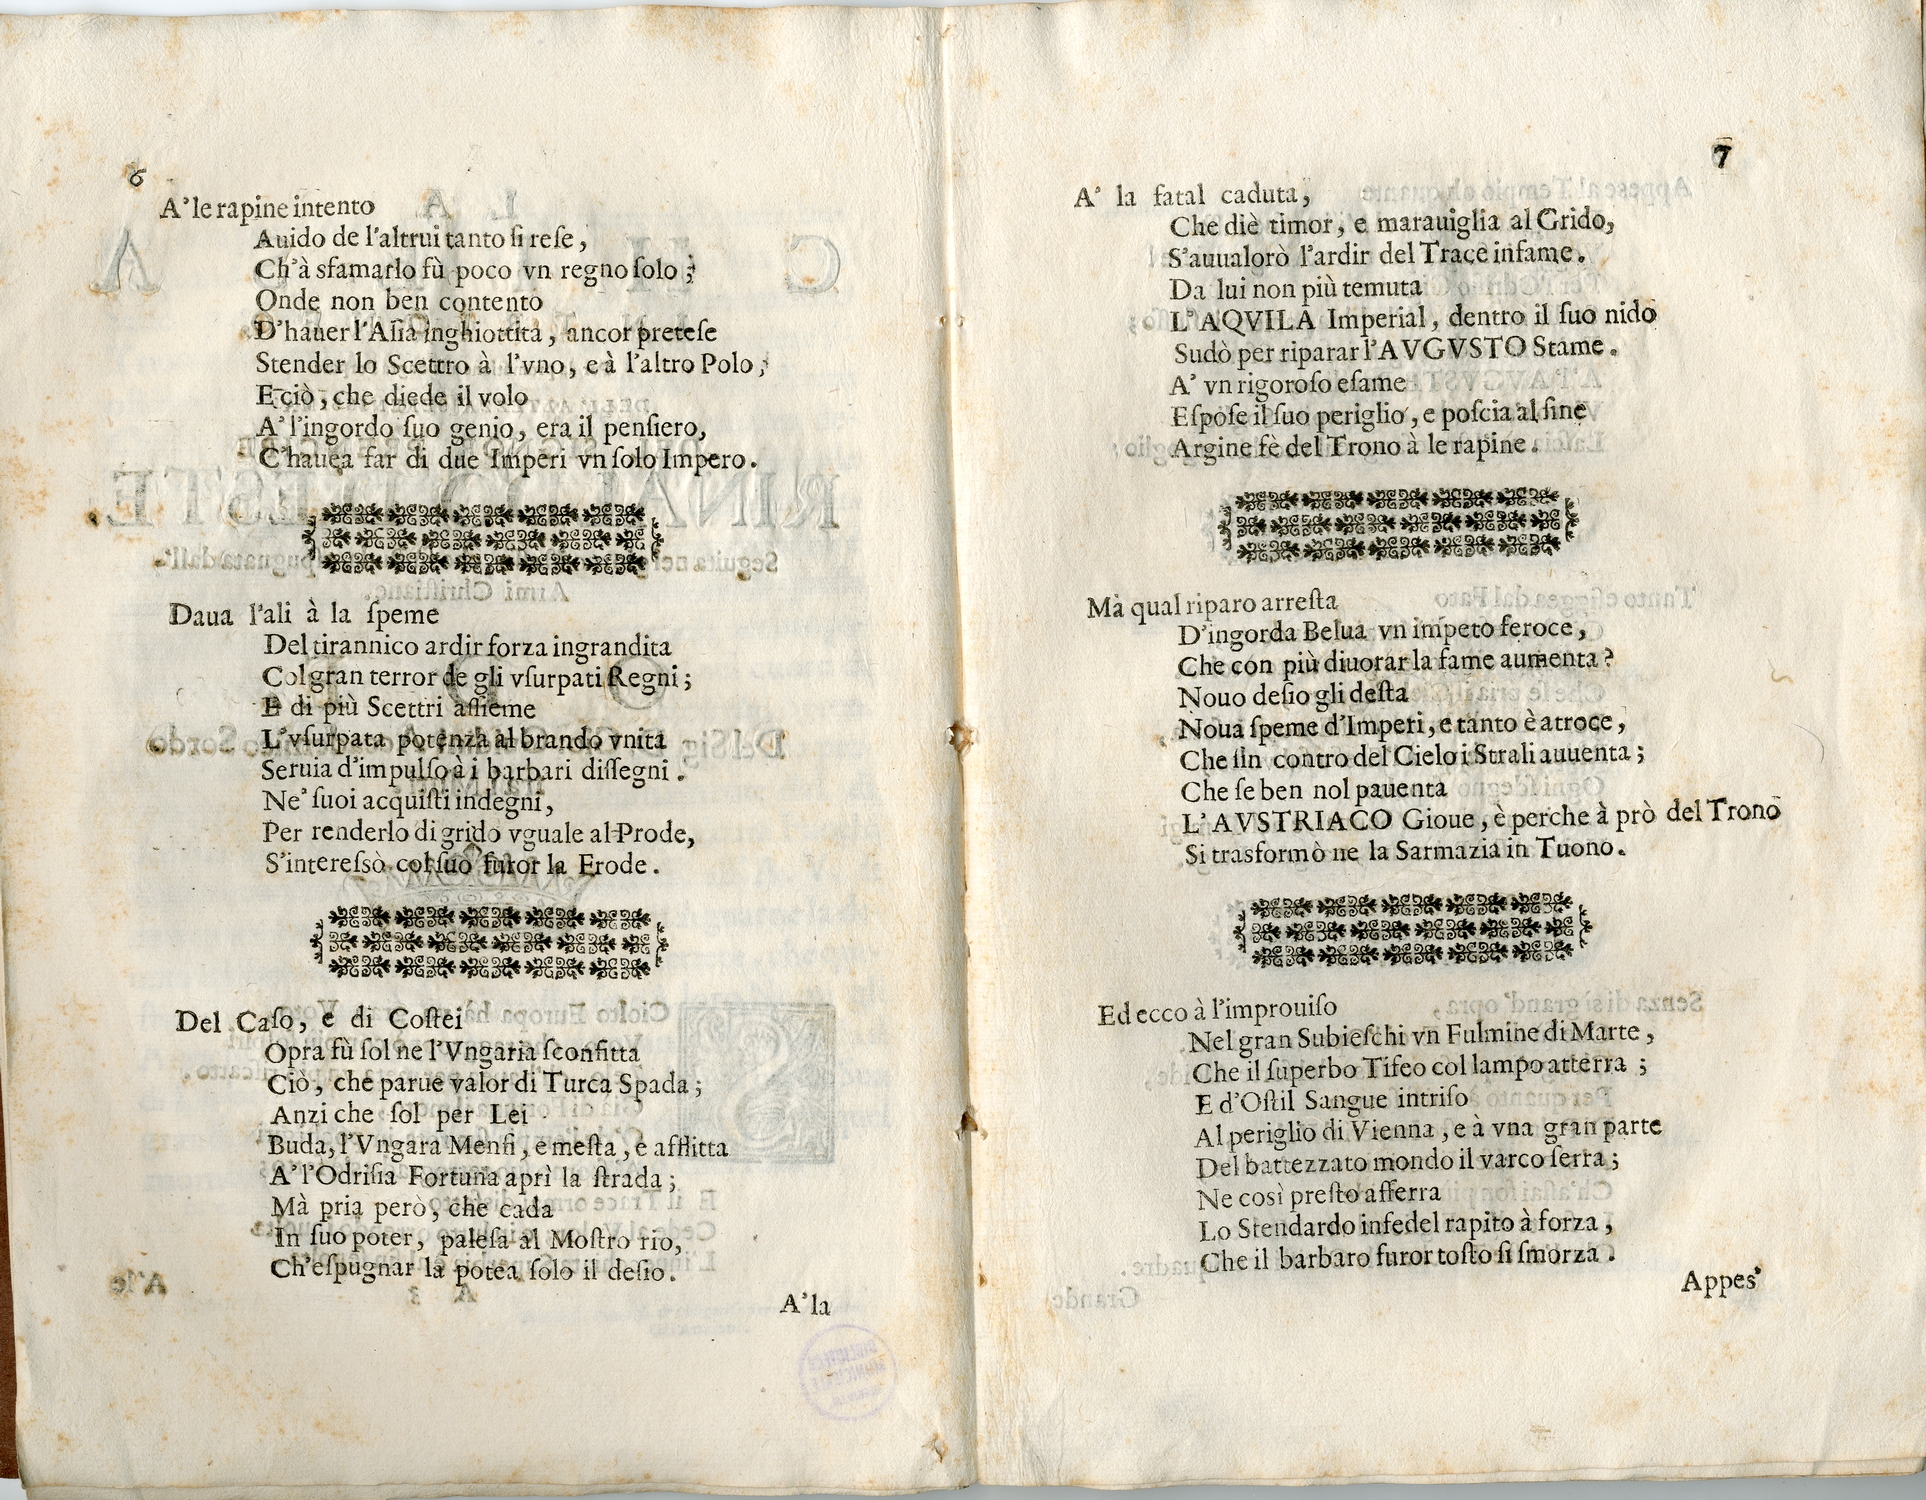 6
A' le rapine intento
Auido de l'altrui tanto ſi reſe,
Ch'à sfamarlo fù poco vn regno ſolo;
Onde non ben contento
D'hauer l'Aſia inghiottita, ancor preteſe
Stender lo Scettro à l'vno, e à l'altro Polo;
E ciò, che diede il volo
A' l'ingordo ſuo genio, era il penſiero,
C'hauea far di due Imperi vn ſolo Impero.
Daua l'ali à la ſpeme
Del tirannico ardir forza ingrandita
Col gran terror de gli vſurpati Regni;
E di più Scettri àſſieme
L'vſurpata potenza al brando vnita
Seruia d'impulſo à i barbari diſſegni.
Ne' ſuoi acquiſti indegni,
Per renderlo di grido vguale al Prode,
S'intereſsò col ſuo furor la Erode.
Del Caſo, e di Coſtei
Opra fù ſol ne l'Vngaria ſconfitta
Ciò, che parue valor di Turca Spada;
Anzi che ſol per Lei
Buda, l'Vngara Menfi, e meſta, e afflitta
A' l'Odriſia Fortuna aprì la ſtrada;
Mà pria però, che cada
In ſuo poter, paleſa al Moſtro rio,
Ch'eſpugnar la potea ſolo il deſio.
A' la
7
A' la fatal caduta,
Che diè timor, e marauiglia al Grido,
S'auualorò l'ardir del Trace infame.
Da lui non più temuta
L'AQVILA Imperial, dentro il ſuo nido
Sudò per riparar l'AVGVSTO Stame.
A' vn rigoroſo eſame
Eſpoſe il ſuo periglio, e poſcia al fine
Argine fè del Trono à le rapine.
Mà qual riparo arreſta
D'ingorda Belua vn impeto feroce,
Che con più diuorar la fame aumenta?
Nouo deſio gli deſta
Noua ſpeme d'Imperi, e tanto è atroce,
Che ſin contro del Cielo i Strali auuenta;
Che ſe ben nol pauenta
L'AVSTRIACO Gioue, è perche à prò del Trono
Si trasformò ne la Sarmazia in Tuono.
Ed ecco à l'improuiſo
Nel gran Subieſchi vn Fulmine di Marte,
Che il ſuperbo Tifeo col lampo atterra;
E d'Oſtil Sangue intriſo
Al periglio di Vienna, e à vna gran parte
Del battezzato mondo il varco ſerra;
Ne così preſto afferra
Lo Stendardo infedel rapito à forza,
Che il barbaro furor toſto ſi ſmorza.
Appes'